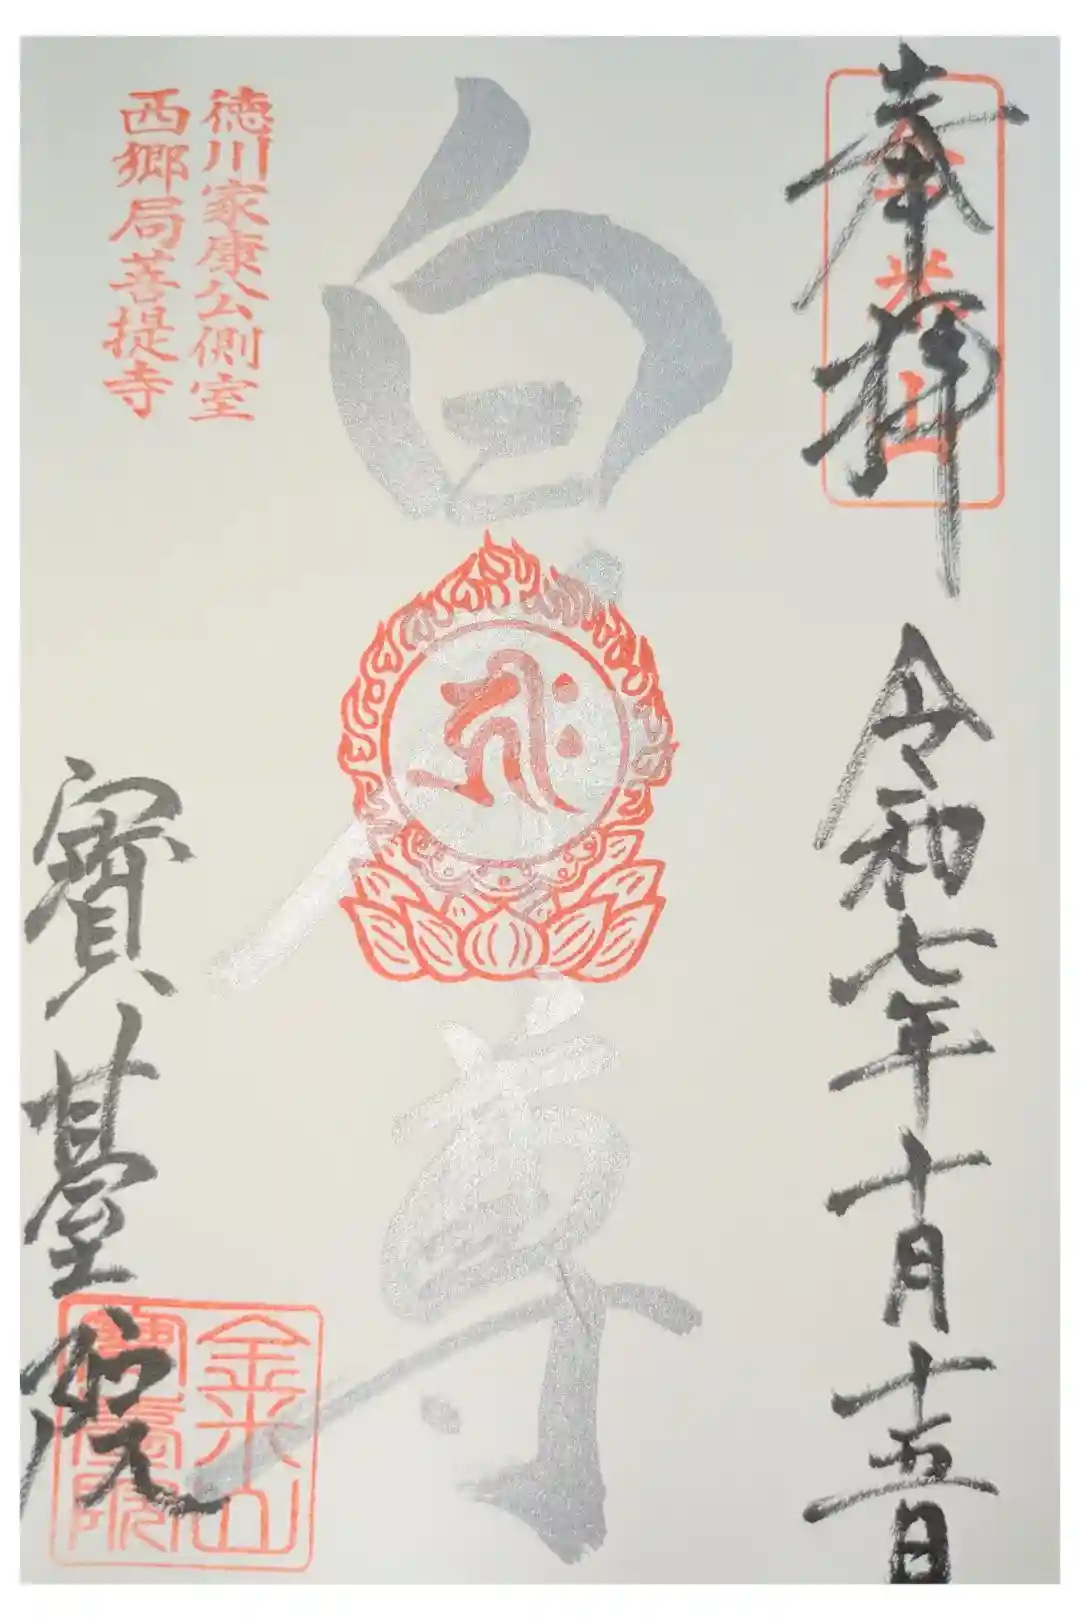 奉拝
金米山
令和七年十月十五日
白本尊
ह्रीः
徳川家康公側室
西郷局菩提寺
寶臺院
金米山
寶臺院